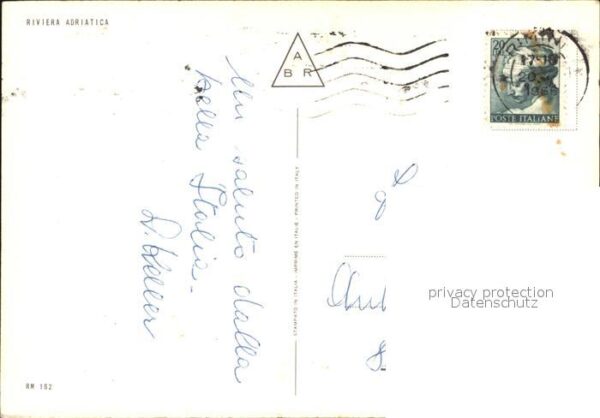 RIVIERA ADRIATICA
A
B R
RIMINI
17-18
1966
POSTE ITALIANE
Un saluto dalla
bella Italia -
STAMPATO IN ITALIA - IMPRIMÉ EN ITALIE - PRINTED IN ITALY
privacy protection
Datenschutz
RM 152